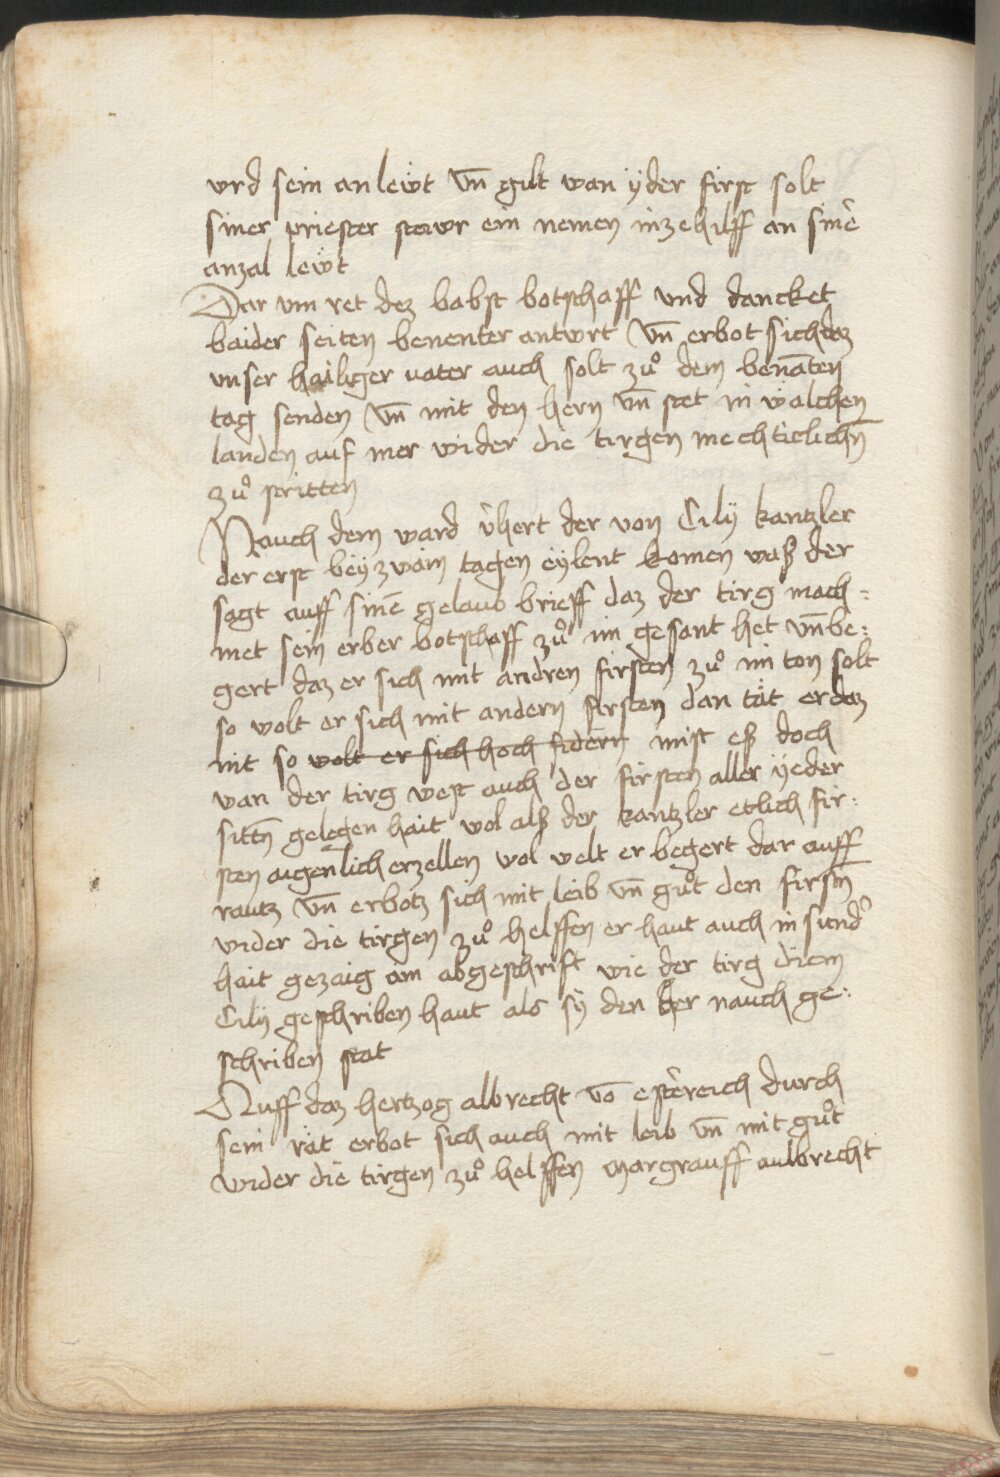 vrd sein an lewt vn̄ gult wan yder first solt
siner priester stewr ein nemen inzehilff an sinē
anzal lewt
Dar vm ret dez babst botschaff vnd dancket
baider seiten benenter antwrt vn̄ erbot sich daz
vnser hailiger vater auch solt zuͦ dem benāten
tag senden vn̄ mit den hern vn̄ stet in wälchen
landen auf mer wider die tirgen mechticlichn̄
zuͦ stritten
Nauch dem ward v̂hert der von Cilÿ kantzler
der erst beÿ zwäin tagen eylent komen waß der
sagt auff sinē gelaub brieff daz der tirg mach=
met sein erber botschaff zuͦ im gesant het vn̄ be:
gert daz er sich mit andren firsten zuͦ im ton solt
so wolt er sich mit andern firsten dan tät er daz
nit so wolt er sich hoch fidern mist eß doch
wan der tirg west auch der firsten aller ÿeder
sittn̄ gelegen hait wol alß der kantzler etlich fir:
sten aigenlich erzellen wol welt er begert dar auff
rautz vn̄ erbotz sich mit leib vn̄ guͦt den firstn̄
wider die tirgen zuͦ helffen er haut auch in sund̾
hait gezaig am abgeschrift wie der tirg diem
Cilÿ geschriben haut als sÿ den her nauch ge:
schriben stat
Auff daz hertzog albrecht vō estêreich durch
sein rät erbot sich auch mit leib vn̄ mit guͦt
wider die tirgen zuͦ helffen margrauff aulbrecht